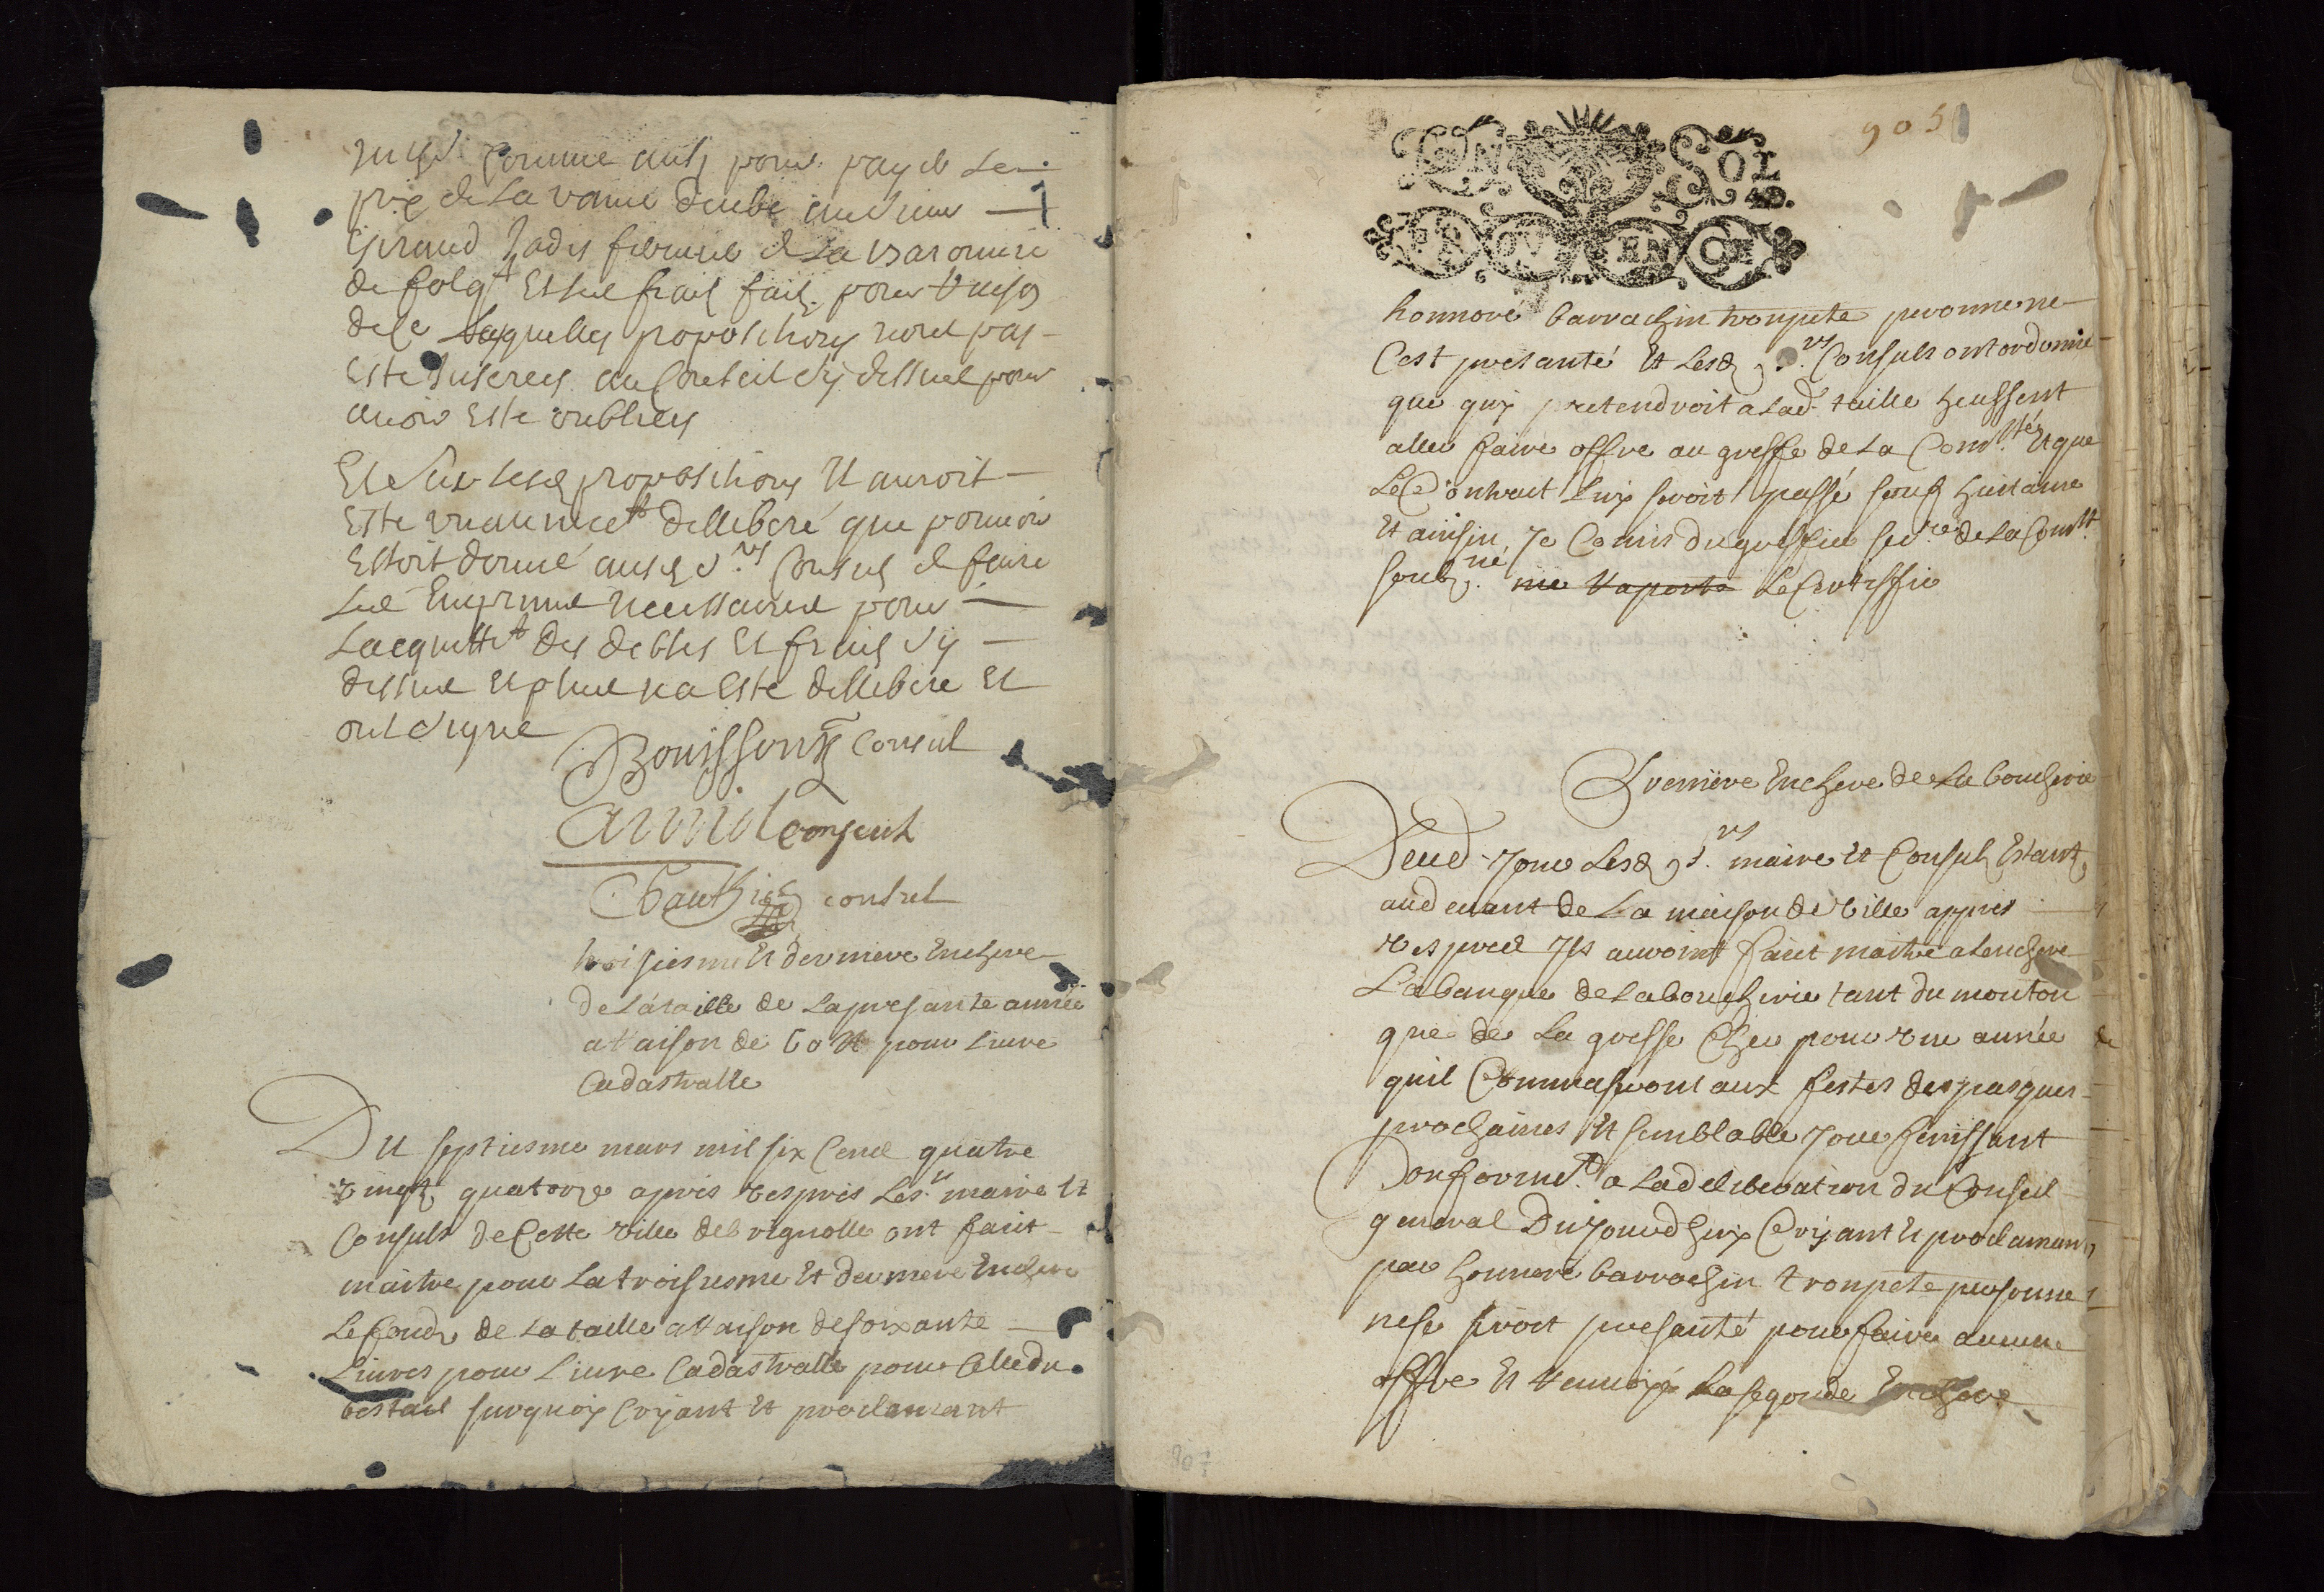 comme aussy pour payer le
prix de la vanne deube au sieur
Giraud Jadis fermier de la baronnie
de folq.t Et les frais faits pour raison
de ce lesquelles propositions nont pas
Este Inserees au Conseil cy dessus pour
avoir Este oublies
Et sur lesd propositions Il auroit
Este unanimem.t dellibere que pouvoir
Estoit donné ausd s.rs Consuls de faire
les Emprunts necessaires pour
lacquittem.t des debtes Et frais cy
dessus Et plus na Este dellibere Et
ont signe
Bouisson Consul
Amic Consul
Gauthier consul
troisiesme Et derniere Enchere
de la taille de la presante année
a raison de 60 ₶ pour Livre
Cadastralle
Du septiesme mars mil six Cens quatre
vingts quatorze apres vespres Les s.rs maire Et
Consuls de Cette ville de brignolle ont fait
maitre pour la troisiesme Et derniere Enchere
le fonds de la taille a raison de soixante
Livres pour Livre Cadastralle pour Celle du
bestail surquoy Criyant Et proclamant
905
UN SOL
4D.
PROVENCE
honnoré barrachin tronpete personne ne
Cest presanté Et Lesd s.rs Consuls ont ordonné
que qui pretendroit a lad. taille heussent
aller faire offre au greffe de La Com.té Et que
Le Contract Luy seroit passé sous huitaine
Et ainsin Je Comis du greffier sec.re de la Com.té
soubz.né me raporte le Certiffie
Premiere Enchere de La boucherie
Deud. Jour Lesd s.rs maire Et Consuls Estant
audevant de La maison de Ville appres
vespres Ils auroint fait maitre a lenchere
La banque de la boucherie tant du mouton
que de La grosse Cher pour une année
quil Commanseront aux festes des pasques
prochaines Et semblable Jour finissant
Conformem.t a La deliberation du Conseil
general Du Jourdhuy Criyant Et proclamant
par honnoré barrachin tronpete personne
ne se seroit presanté pour faire aucune
offre Et renvoyé La segonde Enchere